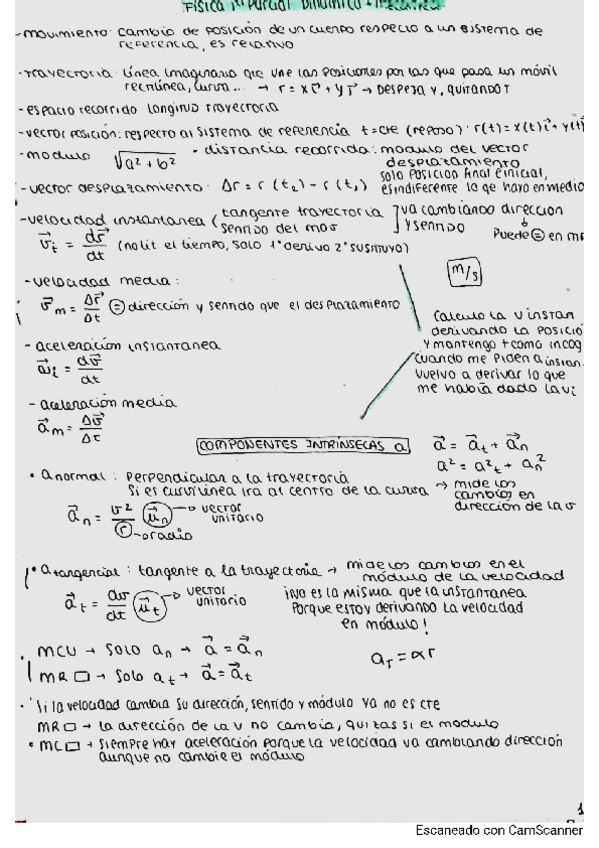 Física 1er Parcial Dinámica
-movimiento: cambio de posición de un cuerpo respecto a un sistema de
referencia, es relativo
-Trayectoria: línea imaginaria que une las posiciones por las que pasa un móvil
rectilínea, curva... → r = xi⃗ + yj⃗ → Despeja y, quitando T
-espacio recorrido longitud trayectoria
-vector posición: respecto al sistema de referencia t=cte (reposo): r(t) = x(t)i⃗ + y(t)
-modulo: √a²+b² • distancia recorrida: modulo del vector
desplazamiento
-vector desplazamiento: Δr = r(t₂) - r(t₁) solo posición final e inicial,
es indiferente lo que haya en medio
-velocidad instantánea (tangente trayectoria ] va cambiando dirección
sentido del mov ] y sentido
v⃗ᵢ = dr⃗/dt (no lit el tiempo, solo 1º derivo 2º sustituyo) Puede ⊜ en
m/s
-velocidad media:
v⃗m = Δr⃗/Δt ⊜ dirección y sentido que el desplazamiento
Calculo la v instan
derivando la posicio
y mantengo t como incog
cuando me piden a instan
vuelvo a derivar lo que
me había dado la vi
- aceleración instantanea
a⃗ᵢ = dv⃗/dt
- aceleración media
a⃗m = Δv⃗/Δt
COMPONENTES INTRÍNSECAS a
a⃗ = a⃗t + a⃗n
a² = a²t + an²
• a normal: Perpendicular a la trayectoria
Si es curvilínea irá al centro de la curva
→ mide los
cambios en
dirección de la v
a⃗n = v²/r u⃗n → vector
unitario
→ radio
• a tangencial: tangente a la trayectoria → mide los cambios en el
módulo de la velocidad
a⃗t = dv/dt u⃗t → vector
unitario
¡No es la misma que la instantanea
Porque estoy derivando la velocidad
en módulo!
. MCU → solo an → a⃗ = a⃗n
MR□ → solo at → a⃗ = a⃗t
aT = αr
• Si la velocidad cambia su dirección, sentido y módulo ya no es cte
MR□ → la dirección de la v no cambia, quizas si el modulo
• MC□ → siempre hay aceleración porque la velocidad va cambiando dirección
aunque no cambie el módulo
1
Escaneado con CamScanner